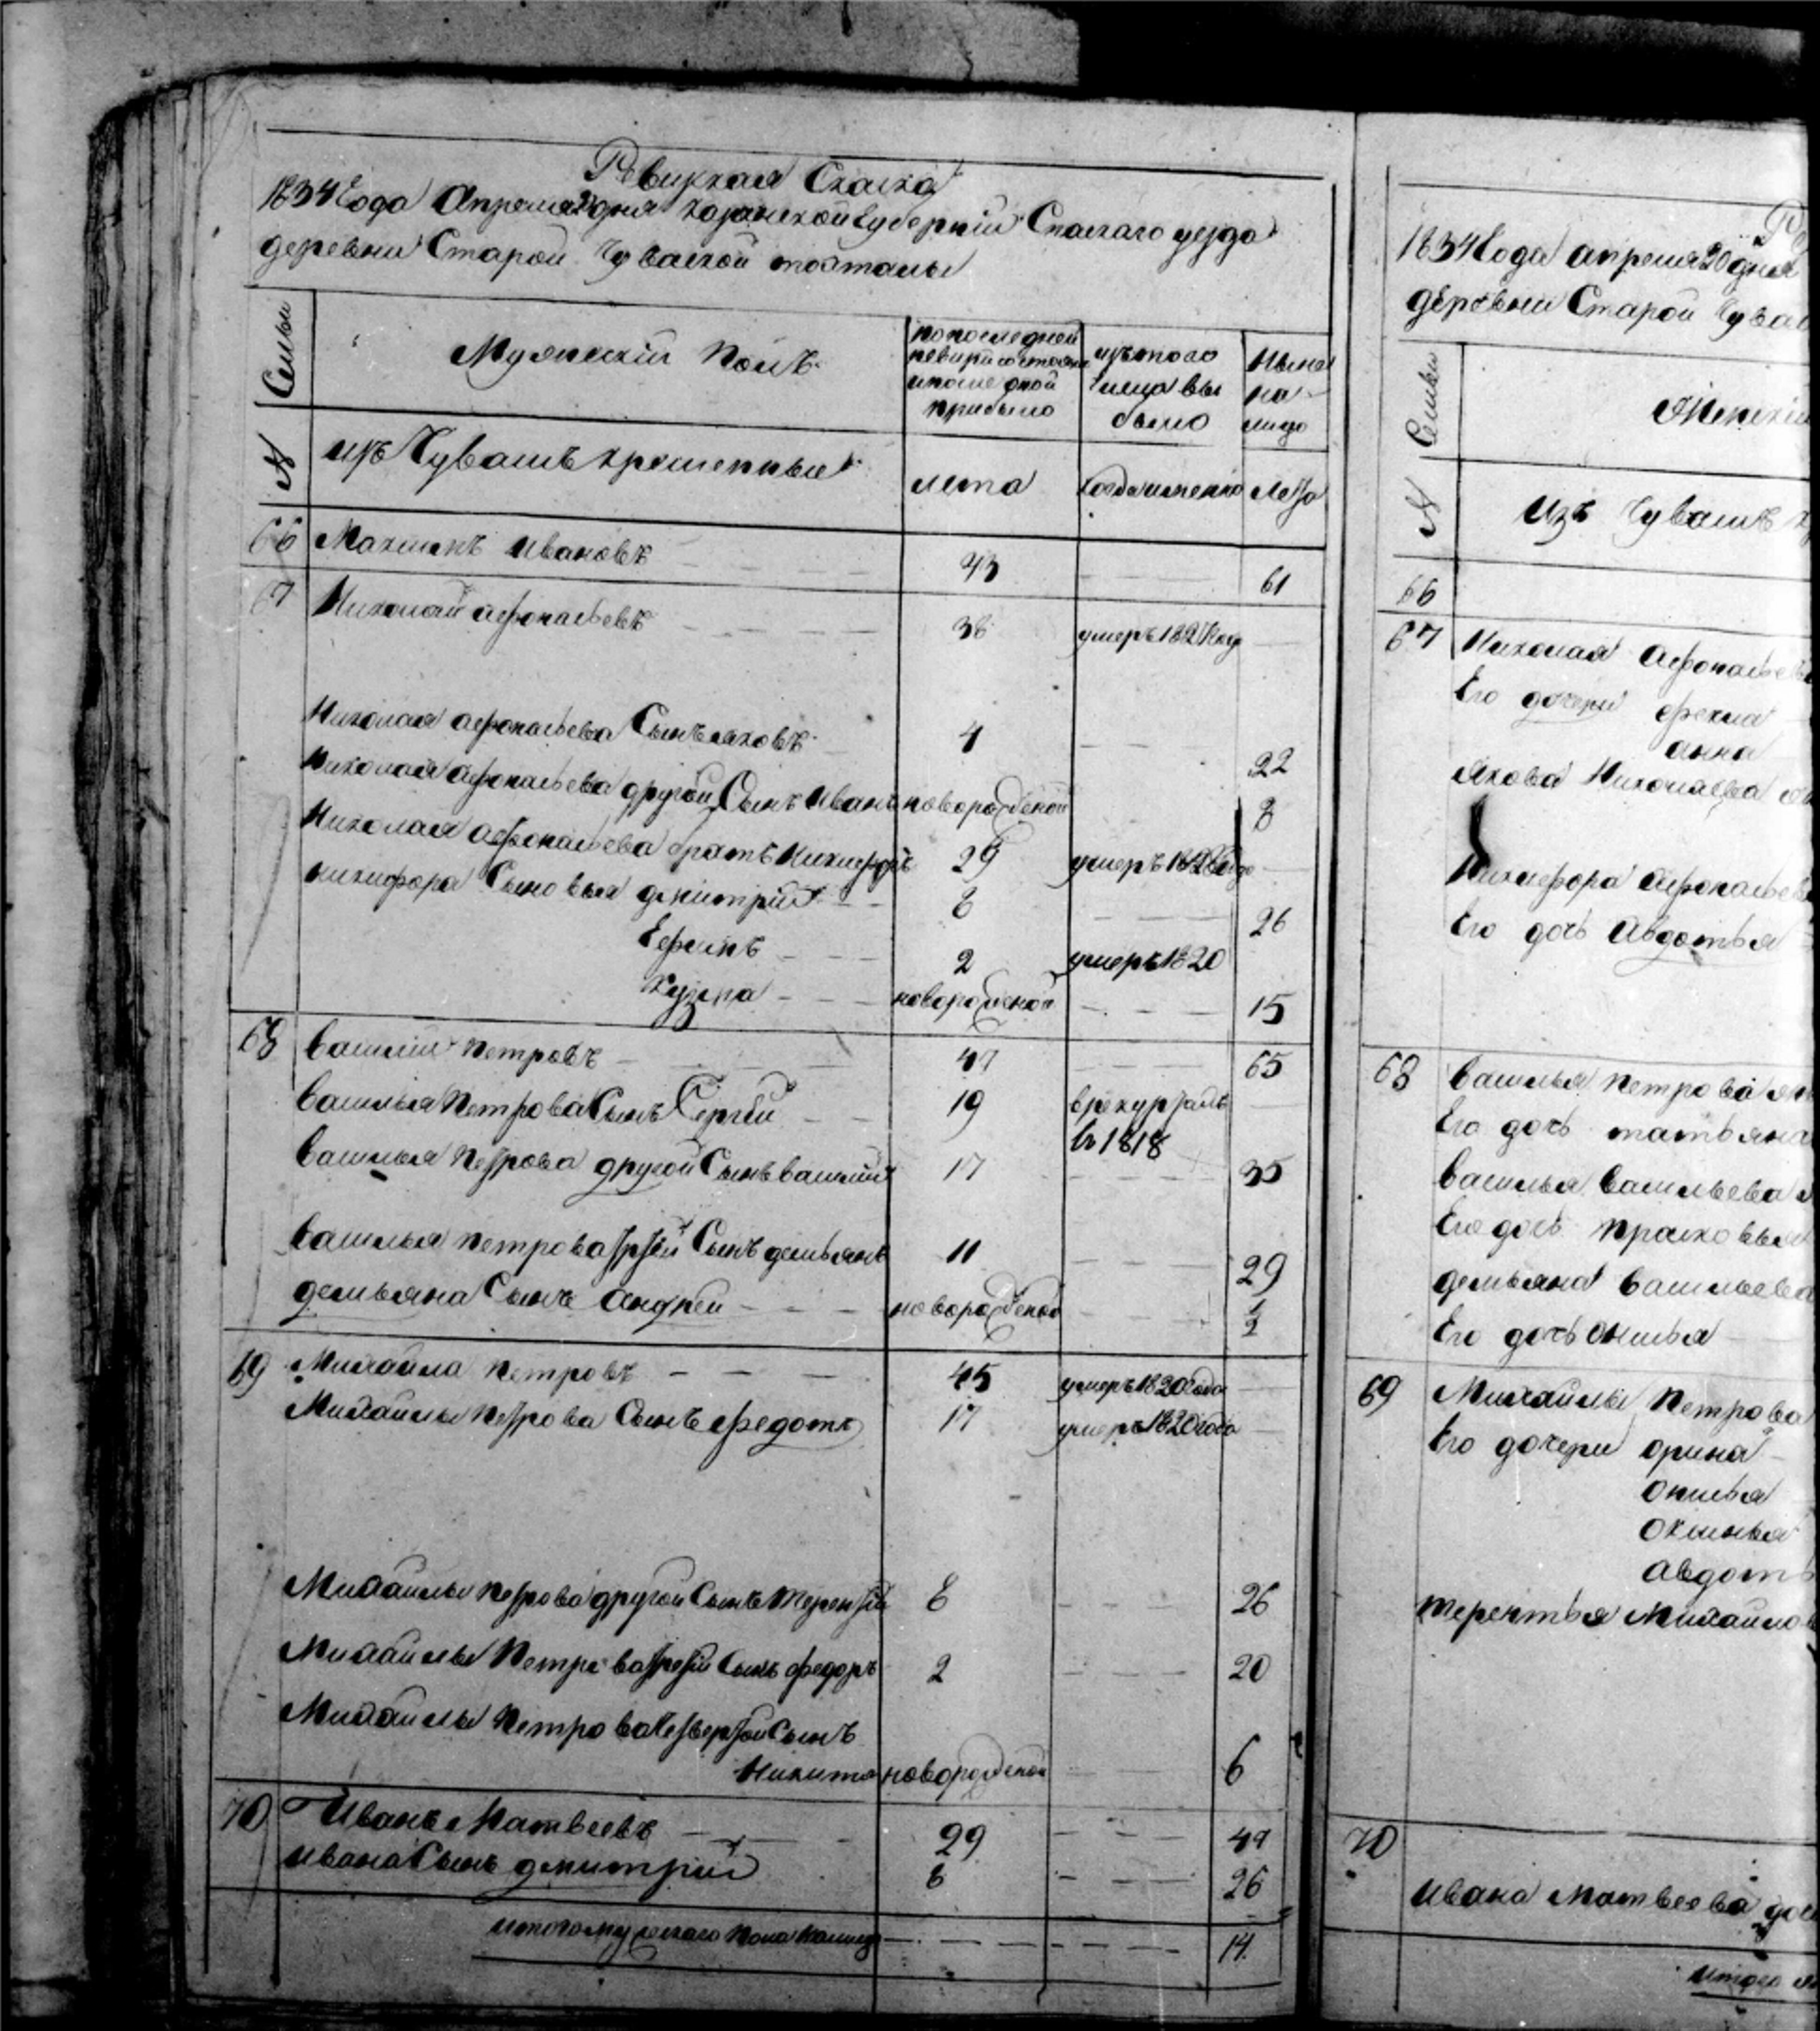 Ревизкая Сказка
1834 Года Апреля 20 дня Казанской Губернии Спаскаго уезда
деревни Старой Чуваской
Семьи
Мужеский Полъ
по последней ревизии состояло и после оной прибыло
изъ того числа вы было
Ныне на лицо
№
изъ Чувашъ крещенные
лета
когда именно
Лета
66 Максимъ Ивановъ 43 61
67 Николай Афонасьевъ 36 умеръ 182
Николая Афонасьева Сынъ Яковъ 4 22
Николая Афонасьева другой Сынъ Иванъ новорожденой 8
Николая Афонасьева братъ Никифоръ 29 умеръ
Никифора Сыновья Дмитрий 8 26
Ефимъ 2 умеръ 1820
Кузма новорожденой 15
68 Василий Петровъ 47 65
Василья Петрова Сынъ Сергей 19 в рекруталъ
в 1818
Василья Петрова другой Сынъ Василий 17 35
Василья Петрова третей Сынъ Демьянъ 11 29
Демьяна Сынъ Андрей новорожденой 1/2
69 Михайла Петровъ 45 умеръ 1820 года
Михайлы Петрова Сынъ Федотъ 17 умеръ 1820 года
Михайлы Петрова другой Сынъ Терентей 8 26
Михайлы Петрова третей Сынъ Федоръ 2 20
Михайлы Петрова Четвертой Сынъ
Никита новорожденой 6
70 Иванъ Матвеевъ 29 47
Ивана Сынъ Дмитрий 8 26
Итого мужескаго пола налицо 14
1834 Года апреля 20 дня
деревни Старой Чувас
Семьи
Женский
№
Изъ Чувашъ
66
67 Николая Афонасьев
Его дочери Фекла
Анна
Якова Николаева
Никифора Афонасьев
Его дочь Авдотья
68 Василья Петрова
Его дочь Татьяна
Василья Васильева
Его дочь Прасковья
Демьяна Васильева
Его дочь
69 Михайлы Петрова
Его дочери Орина
Авдоть
Терентья Михайлов
70
Ивана Матвеева доч
Итого